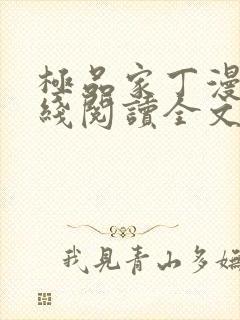 極品家丁漫
綫閱讀全文
我見青山多嫵